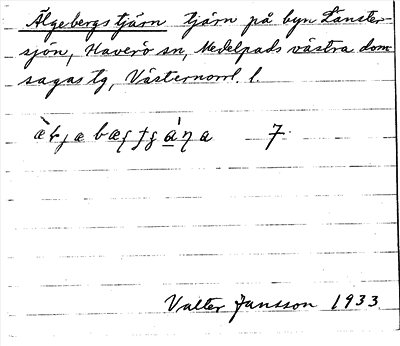 Älgebergstjärn tjärn på byn Lanster-
sjön, Haverö sn, Medelpads västra dom
sagas tg, Västernorrl. l.
7.
Valter Jansson 1933